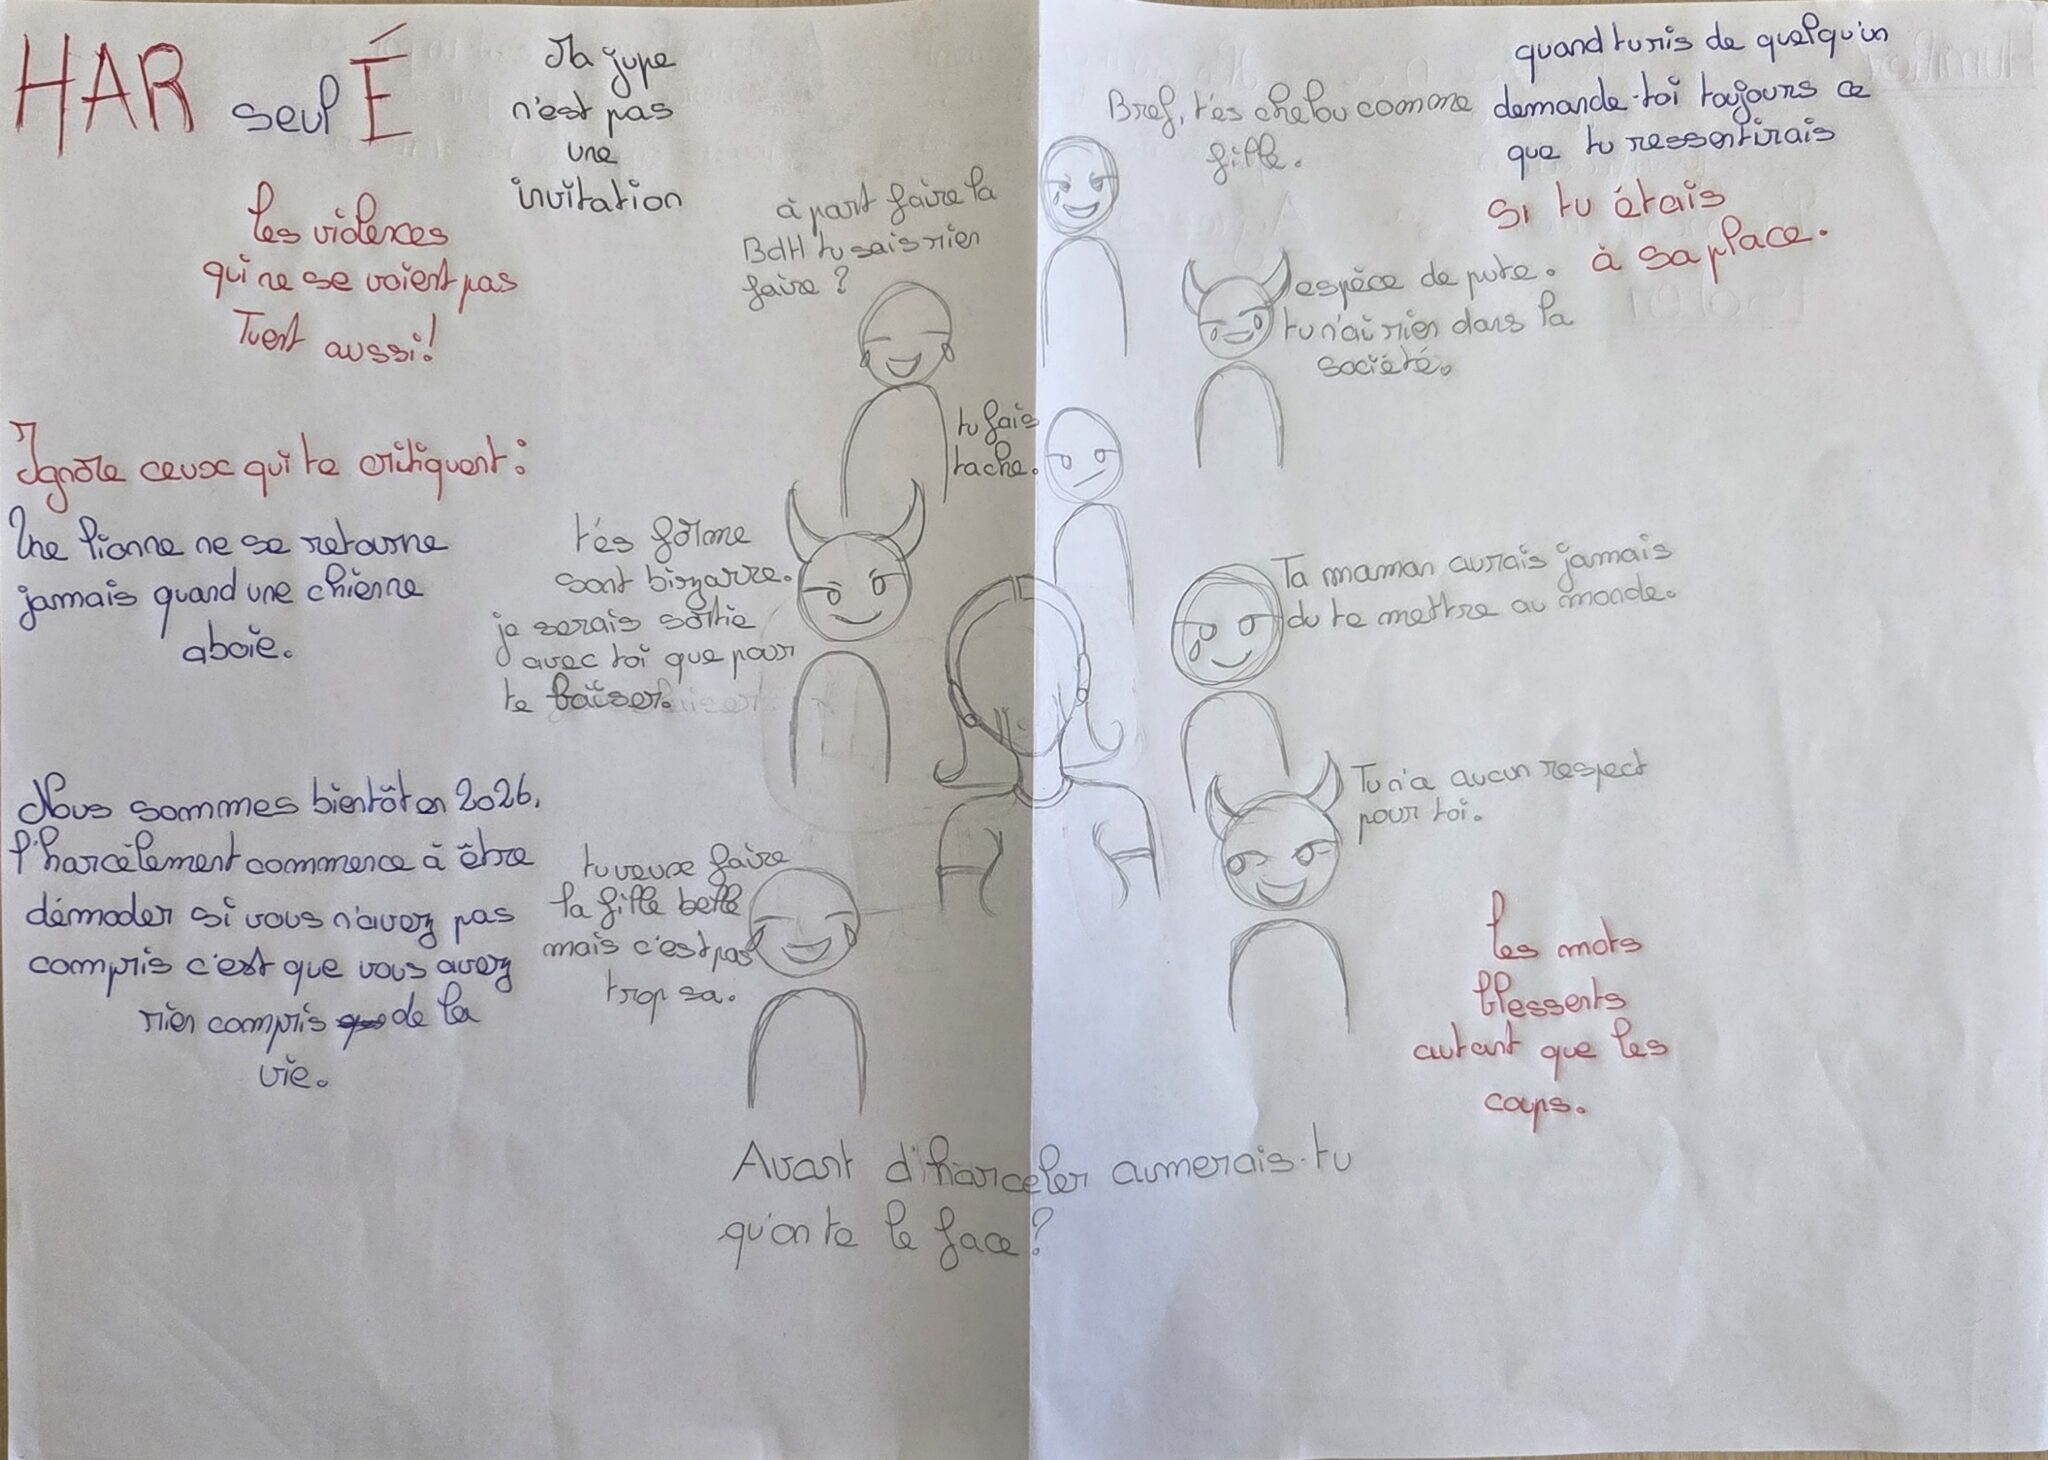 HAR seul É
Ma jupe
n'est pas
une
invitation
les violences
qui ne se voient pas
Tuent aussi!
à part faire la
BdH tu sais rien
faire ?
Bref, t'es chelou comme
fille.
quand tu ris de quelqu'un
demande-toi toujours ce
que tu ressentirais
si tu étais
à sa place.
espèce de pute.
tu n'ai rien dans la
société.
tu fais
tache.
Ignore ceux qui te critiquent :
Une lionne ne se retourne
jamais quand une chienne
aboie.
t'és forme
sont bizarre.
je serais sortie
avec toi que pour
te baiser.
Ta maman aurais jamais
du te mettre au monde.
Tu n'a aucun respect
pour toi.
Nous sommes bientôt en 2026,
l'harcèlement commence à être
démoder si vous n'avez pas
compris c'est que vous avez
rien compris de la
vie.
tu veux faire
la fille belle
mais c'est pas
trop sa.
les mots
blessents
autant que les
coups.
Avant d'harceler aimerais-tu
qu'on te le face ?